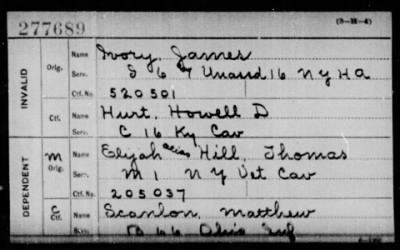 277689
(3-M-4)
INVALID
Orig.
Name Ivory, James
Serv. S 6 7 Unassd 16 N Y H A
Ctf. No. 520501
Ctf.
Name Hurt, Howell D
Serv. C 16 Ky Cav
DEPENDENT
M
Orig.
Name Elijah alias Hill, Thomas
Serv. M 1 N Y Vet Cav
Ctf. No. 205037
C
Ctf.
Name Scanlon, Matthew
Serv. B 66 Ohio Inf